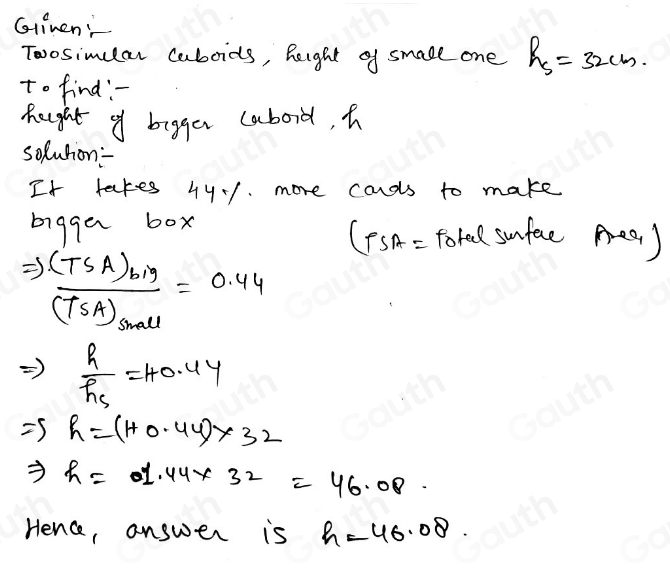 Given:-
Two similar cuboids, height of small one hₛ = 32 cm.
To find:-
height of bigger cuboid, h
solution:-
It takes 44% more cards to make
bigger box
(TSA = Total surface Area)
⇒ (TSA)big / (TSA)small = 0.44
⇒ h/hₛ = 1+0.44
⇒ h = (1+0.44) × 32
⇒ h = 1.44 × 32 = 46.08.
Hence, answer is h = 46.08.